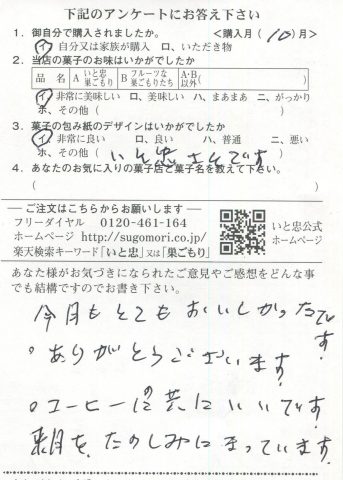 下記のアンケートにお答え下さい
1. 御自分で購入されましたか。 <購入月( 10 )月>
イ、自分又は家族が購入 ロ、いただき物
2. 当店の菓子のお味はいかがでしたか
品 名 A いと忠巣ごもり B フルーツな巣ごもりたち A・B以外( )
イ、非常に美味しい ロ、美味しい ハ、まあまあ ニ、がっかり
ホ、その他( )
3. 菓子の包み紙のデザインはいかがでしたか
イ、非常に良い ロ、良い ハ、普通 ニ、悪い
ホ、その他( いと忠さんです )
4. あなたのお気に入りの菓子店と菓子名を教えて下さい。
( )
― ご注文はこちらからお願いします ―
フリーダイヤル 0120-461-164
ホームページ http://sugomori.co.jp/
楽天検索キーワード「いと忠」又は「巣ごもり」
いと忠公式
ホームページ
あなた様がお気づきになられたご意見やご感想をどんな事
でも結構ですのでお書き下さい。
今月もとてもおいしかったです!
。ありがとうございます!
。コーヒーの共にいいです!
来月を、たのしみにまっています!